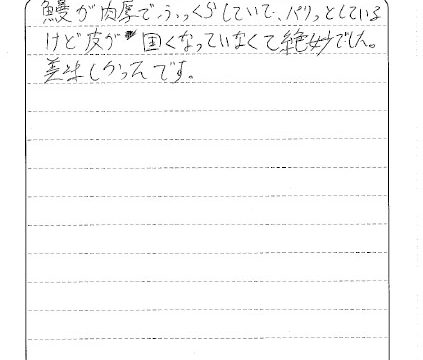 鰻が肉厚でふっくらしていて、パリっとしている
けど皮が固くなっていなくて絶妙でした。
美味しかったです。